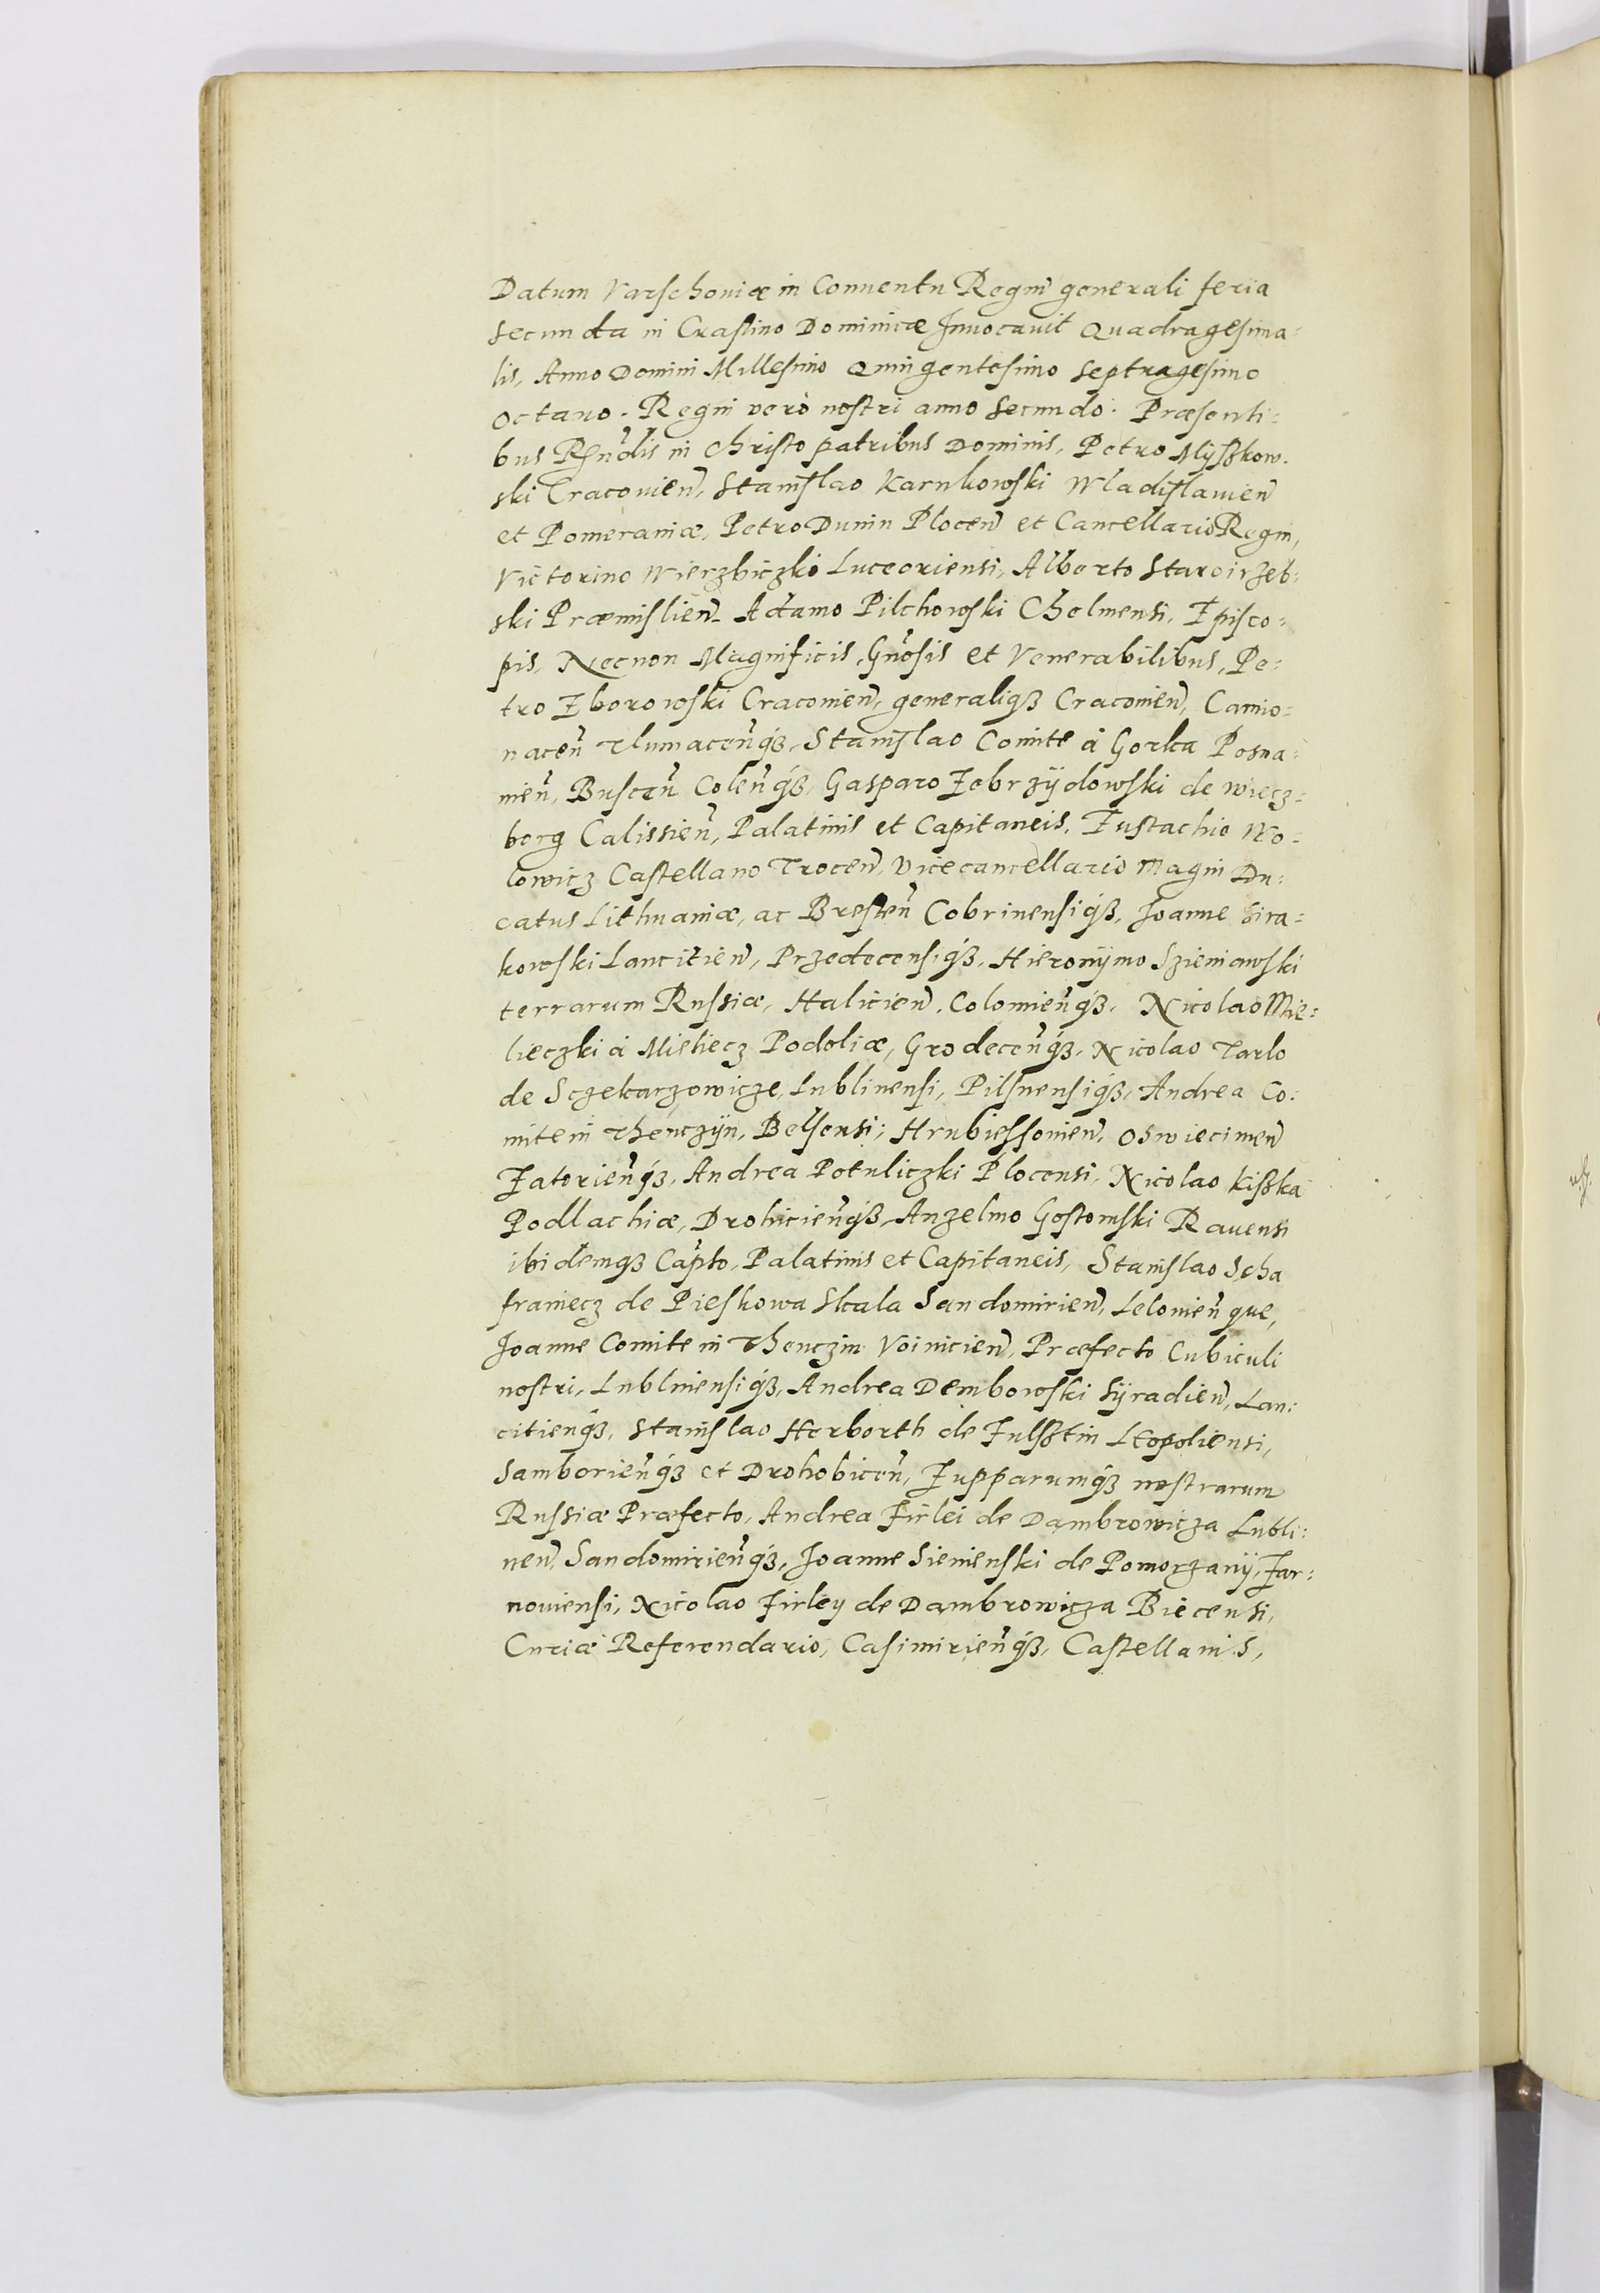 Datum Varschouiæ in Conuentu Regni generali feria
secunda in Crastino Dominicæ Inuocauit Quadragesima:
lis, Anno Domini Millesimo Quingentesimo Septuagesimo
Octauo. Regni verò nostri anno Secundo. Præsenti:
bus Rñdis in Christo patribus Dominis, Petro Myßkow:
ski Cracouien̄, Stanislao Karnkowski Wladislauien̄
et Pomeraniæ, Petro Dunin Plocen̄ et Cancellario Regni,
Victorino Wierzbiczki Luceoriensi, Alberto Staroirzeb:
ski Præmislien̄, Adamo Pilchowski Chelmensi, Episco:
pis, Necnon Magnificis, Gn̄osis et Venerabilibus, Pe:
tro Zborowski Cracouien̄, generaliqꝫ Cracouien̄, Camio:
nacen̄ Tlumacen̄qꝫ, Stanislao Comite à Gorka Posna:
nien̄, Buscen̄ Colen̄qꝫ, Gasparo Zebrzÿdowski de Wiecz:
borg Calissien̄, Palatinis et Capitaneis, Eustachio Wo:
lowicz Castellano Trocen̄, Vicecancellario Magni Du:
catus Lithuaniæ, ac Bresten̄ Cobrinensiqꝫ, Joanne Sira:
kowski Lancitien̄, Przedecensiqꝫ, Hieronÿmo Szieniawski
terrarum Russiæ, Halicien̄, Colomien̄qꝫ, Nicolao Mie:
lieczki à Mieliecz Podoliæ, Grodecen̄qꝫ, Nicolao Tarlo
de Sczekarzowicze, Lublinensi, Pilsnensiqꝫ, Andrea Co:
mite in Thenczÿn, Belsensi, Hrubiessouien̄, Oswiecimen̄
Zatorien̄qꝫ, Andrea Potuliczki Plocensi, Nicolao Kißka
Podlachiæ, Drohicien̄qꝫ, Anzelmo Gostomski Rauensi
ibidemqꝫ Capto, Palatinis et Capitaneis, Stanislao Scha
franiecz de Pieskowa Skala Sandomirien̄, Lelouien̄que,
Joanne Comite in Thenczin Voinicien̄, Præfecto Cubiculi
nostri, Lublinensiqꝫ, Andrea Dembowski Sÿradien̄, Lan:
citien̄qꝫ, Stanislao Herborth de Fulßtin Leopoliensi,
Samborien̄qꝫ et Drohobicen̄, Zupparumqꝫ nostrarum
Russiæ Præfecto, Andrea Firlei de Dambrowicza Lubli:
nen̄, Sandomirien̄qꝫ, Joanne Sienienski de Pomorzanÿ, Zar:
nouiensi, Nicolao Firley de Dambrowicza Biecensi,
Curiæ Referendario, Casimirien̄qꝫ, Castellanis,